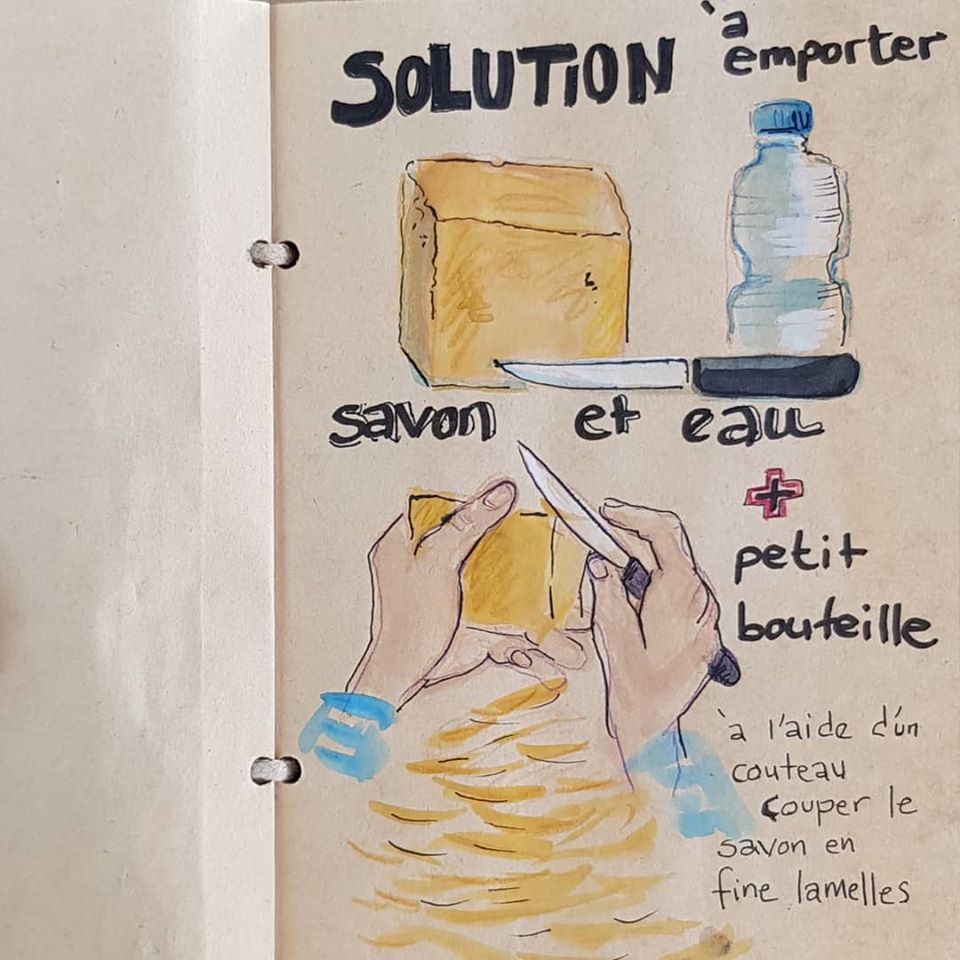 SOLUTION à
emporter
savon et eau
+
petit
bouteille
à l'aide d'ún
couteau
couper le
savon en
fine lamelles